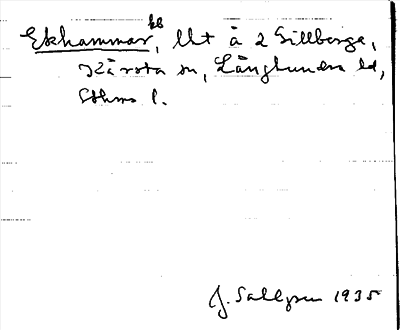 Ekhammar, kb, lht å 2 Gillberga,
Kårsta sn, Långhundra hd,
Sthms l.
J. Sahlgren 1935